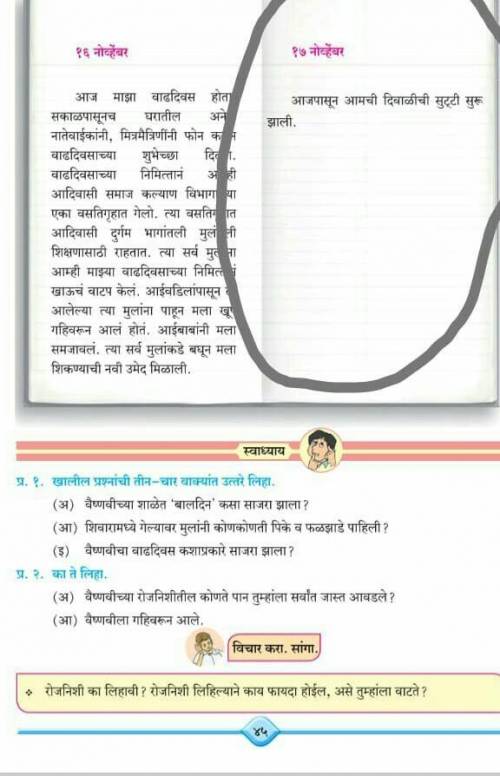 १६ नोव्हेंबर
आज माझा वाढदिवस होता
सकाळपासूनच घरातील अने
नातेवाईकांनी, मित्रमैत्रिणींनी फोन
वाढदिवसाच्या शुभेच्छा
वाढदिवसाच्या निमित्तानं
आदिवासी समाज कल्याण
एका वसतिगृहात गेलो. त्या
आदिवासी दुर्गम भागांतली
शिक्षणासाठी राहतात. त्या सर्व
आम्ही माझ्या वाढदिवसाच्या
खाऊचं वाटप केलं. आईवडिलांपासून
आलेल्या त्या मुलांना पाहून मला
गहिवरून आलं होतं. आईबाबांनी मला
समजावलं. त्या सर्व मुलांकडे बघून मला
शिकण्याची नवी उमेद मिळाली.
१७ नोव्हेंबर
आजपासून आमची दिवाळीची सुट्टी सुरू
झाली.
स्वाध्याय
प्र. १. खालील प्रश्नांची तीन-चार वाक्यांत उत्तरे लिहा.
(अ) वैष्णवीच्या शाळेत ‘बालदिन’ कसा साजरा झाला ?
(आ) शिवारामध्ये गेल्यावर मुलांनी कोणकोणती पिके व फळझाडे पाहिली ?
(इ) वैष्णवीचा वाढदिवस कशाप्रकारे साजरा झाला ?
प्र. २. का ते लिहा.
(अ) वैष्णवीच्या रोजनिशीतील कोणते पान तुम्हांला सर्वांत जास्त आवडले ?
(आ) वैष्णवीला गहिवरून आले.
विचार करा. सांगा.
❖ रोजनिशी का लिहावी ? रोजनिशी लिहिल्याने काय फायदा होईल, असे तुम्हांला वाटते ?
४५